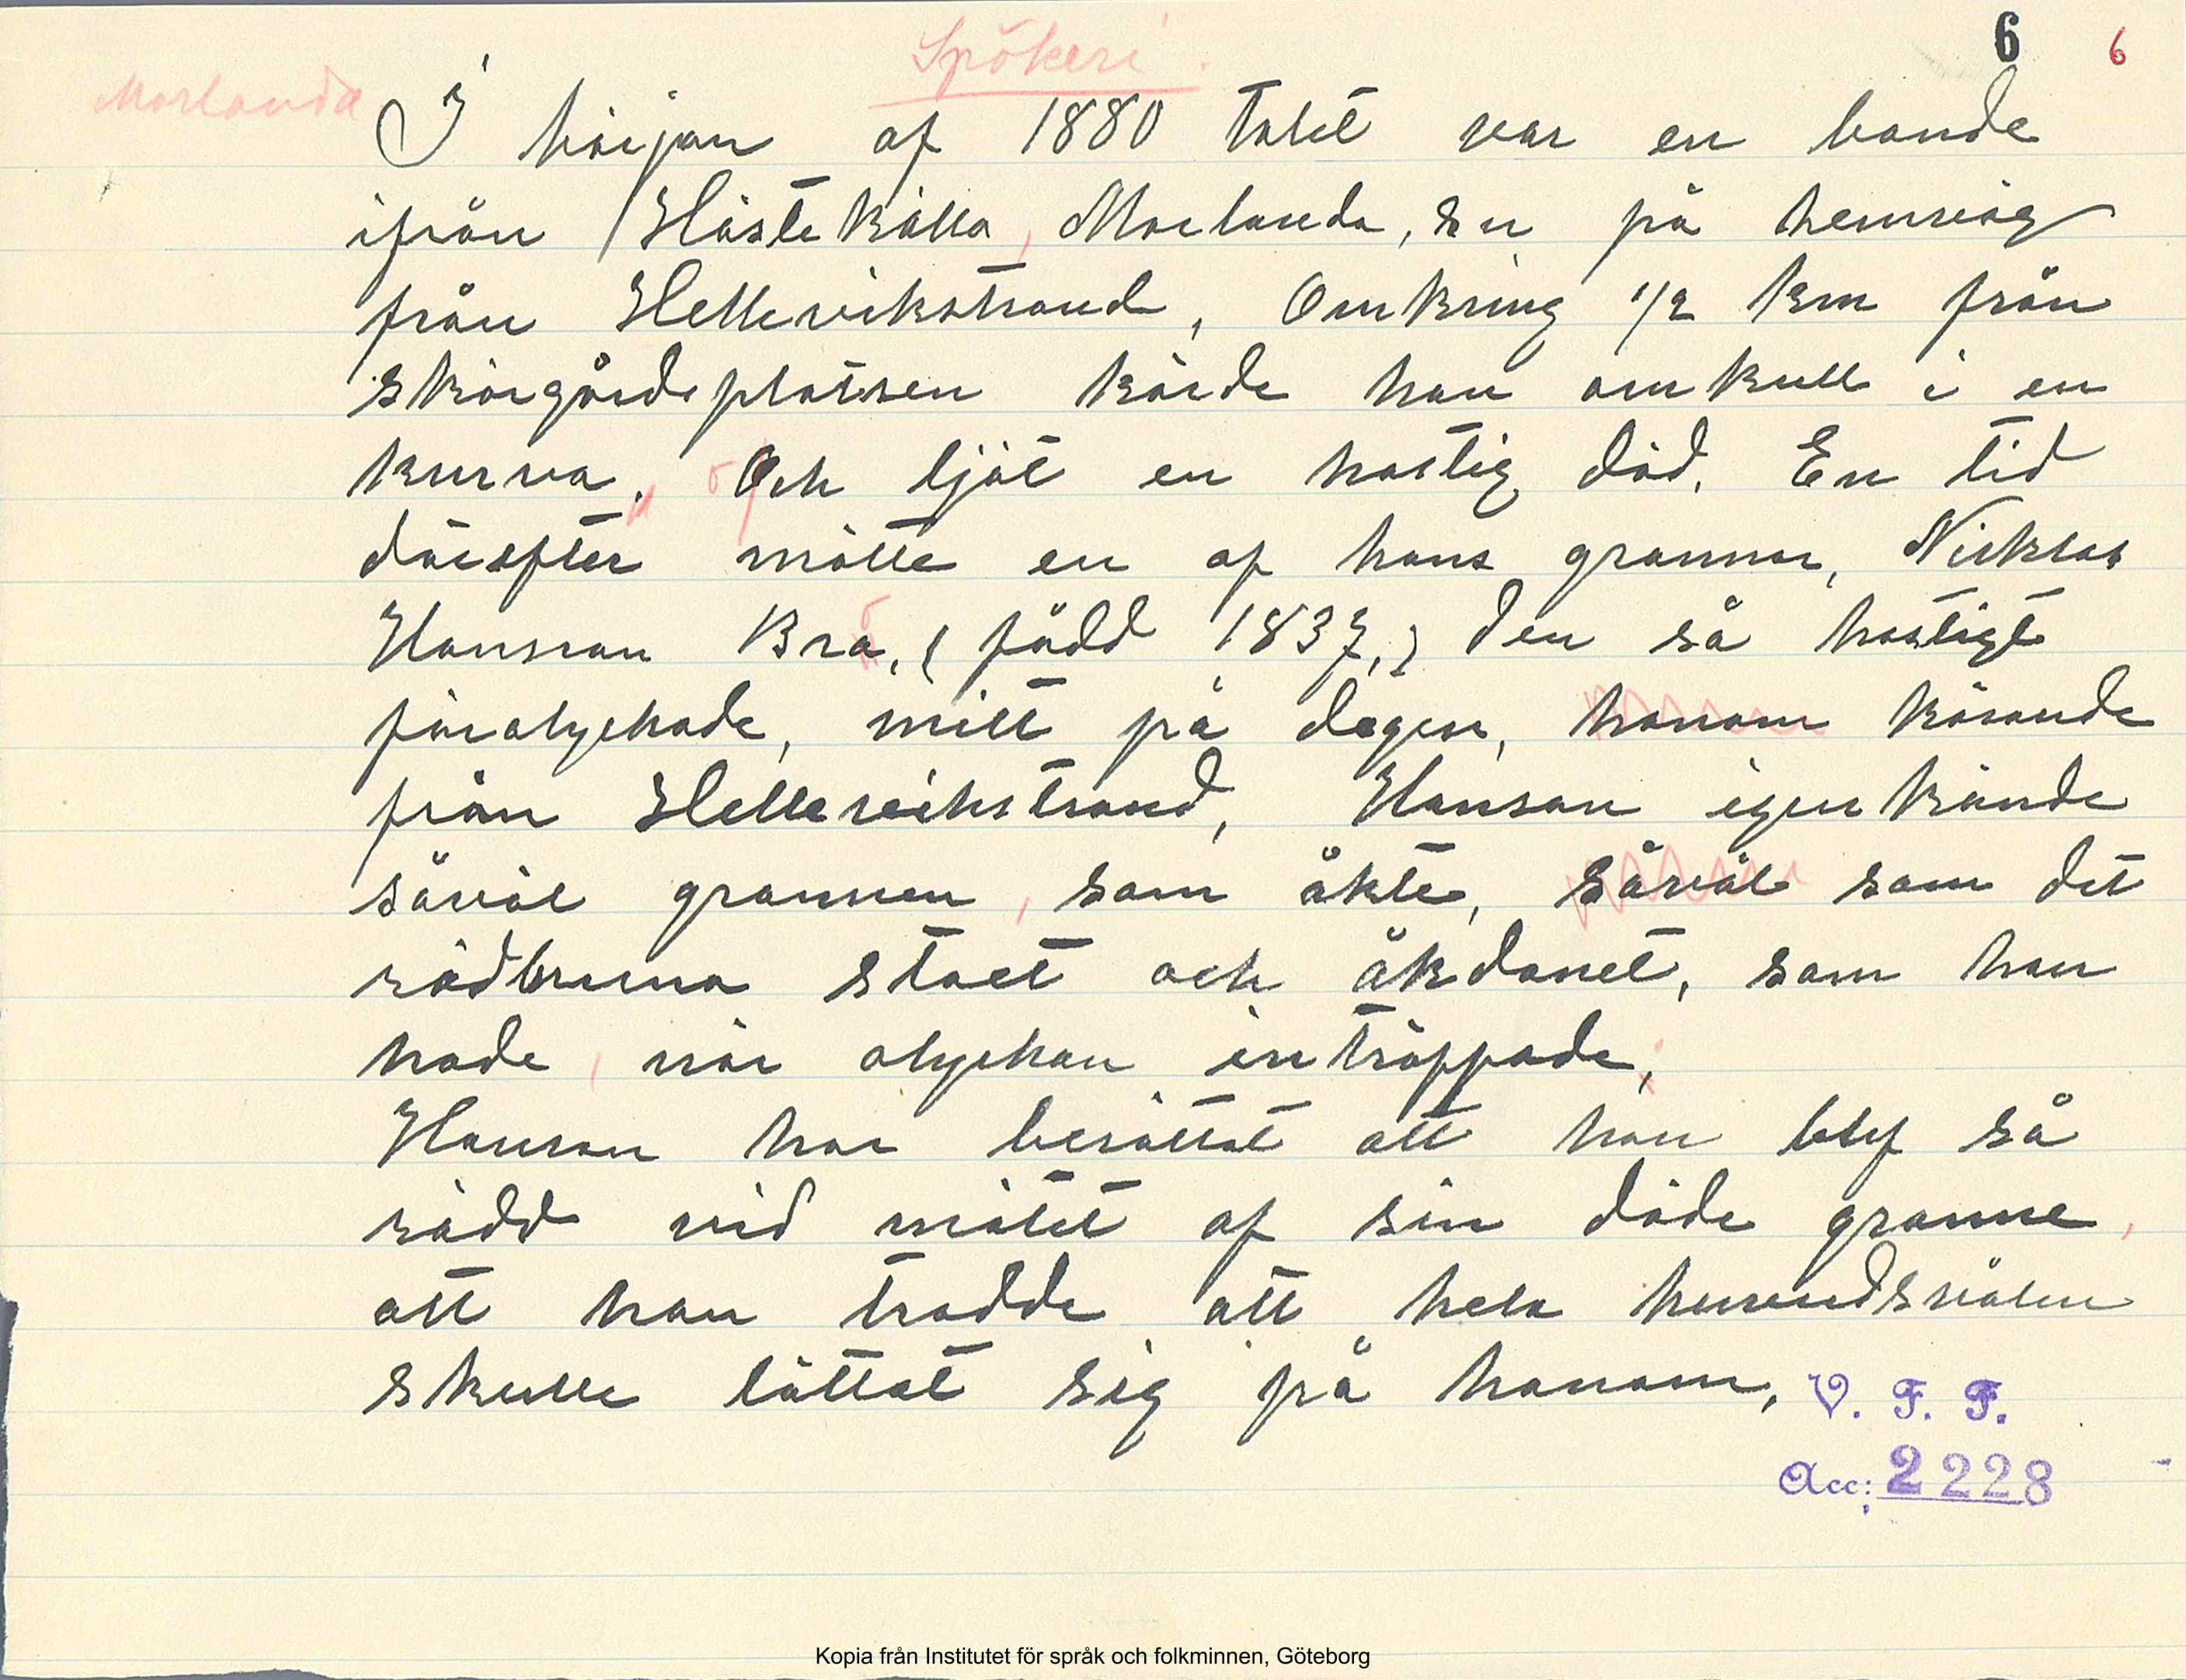 Spökeri.
6 6
Morlanda
I början af 1880 talet var en bonde
ifrån Hästekälla, Morlanda, sn på hemväg
från Hellevikstrand, Omkring 1/2 km från
skärgårdsplatsen körde han omkull i en
kurva. Och ljöt en hastig död. En tid
därefter mötte en af hans grannar, Nicklas
Hansson Bra, (född 1837,) den så hastigt
förolyckade, mitt på dagen, honom körande
från Hellevikstrand, Hanson igenkände
såväl grannen, som åkte, såväl som det
rödbruna stoet och åkdonet, som han
hade, när olyckan inträppade,
Hanson har berättat att han blef så
rädd vid mötet af sin döde granne,
att han trodde att hela huvudsvålen
skulle lättat sig på honom,
V. F. F.
Acc: 2228
Kopia från Institutet för språk och folkminnen, Göteborg